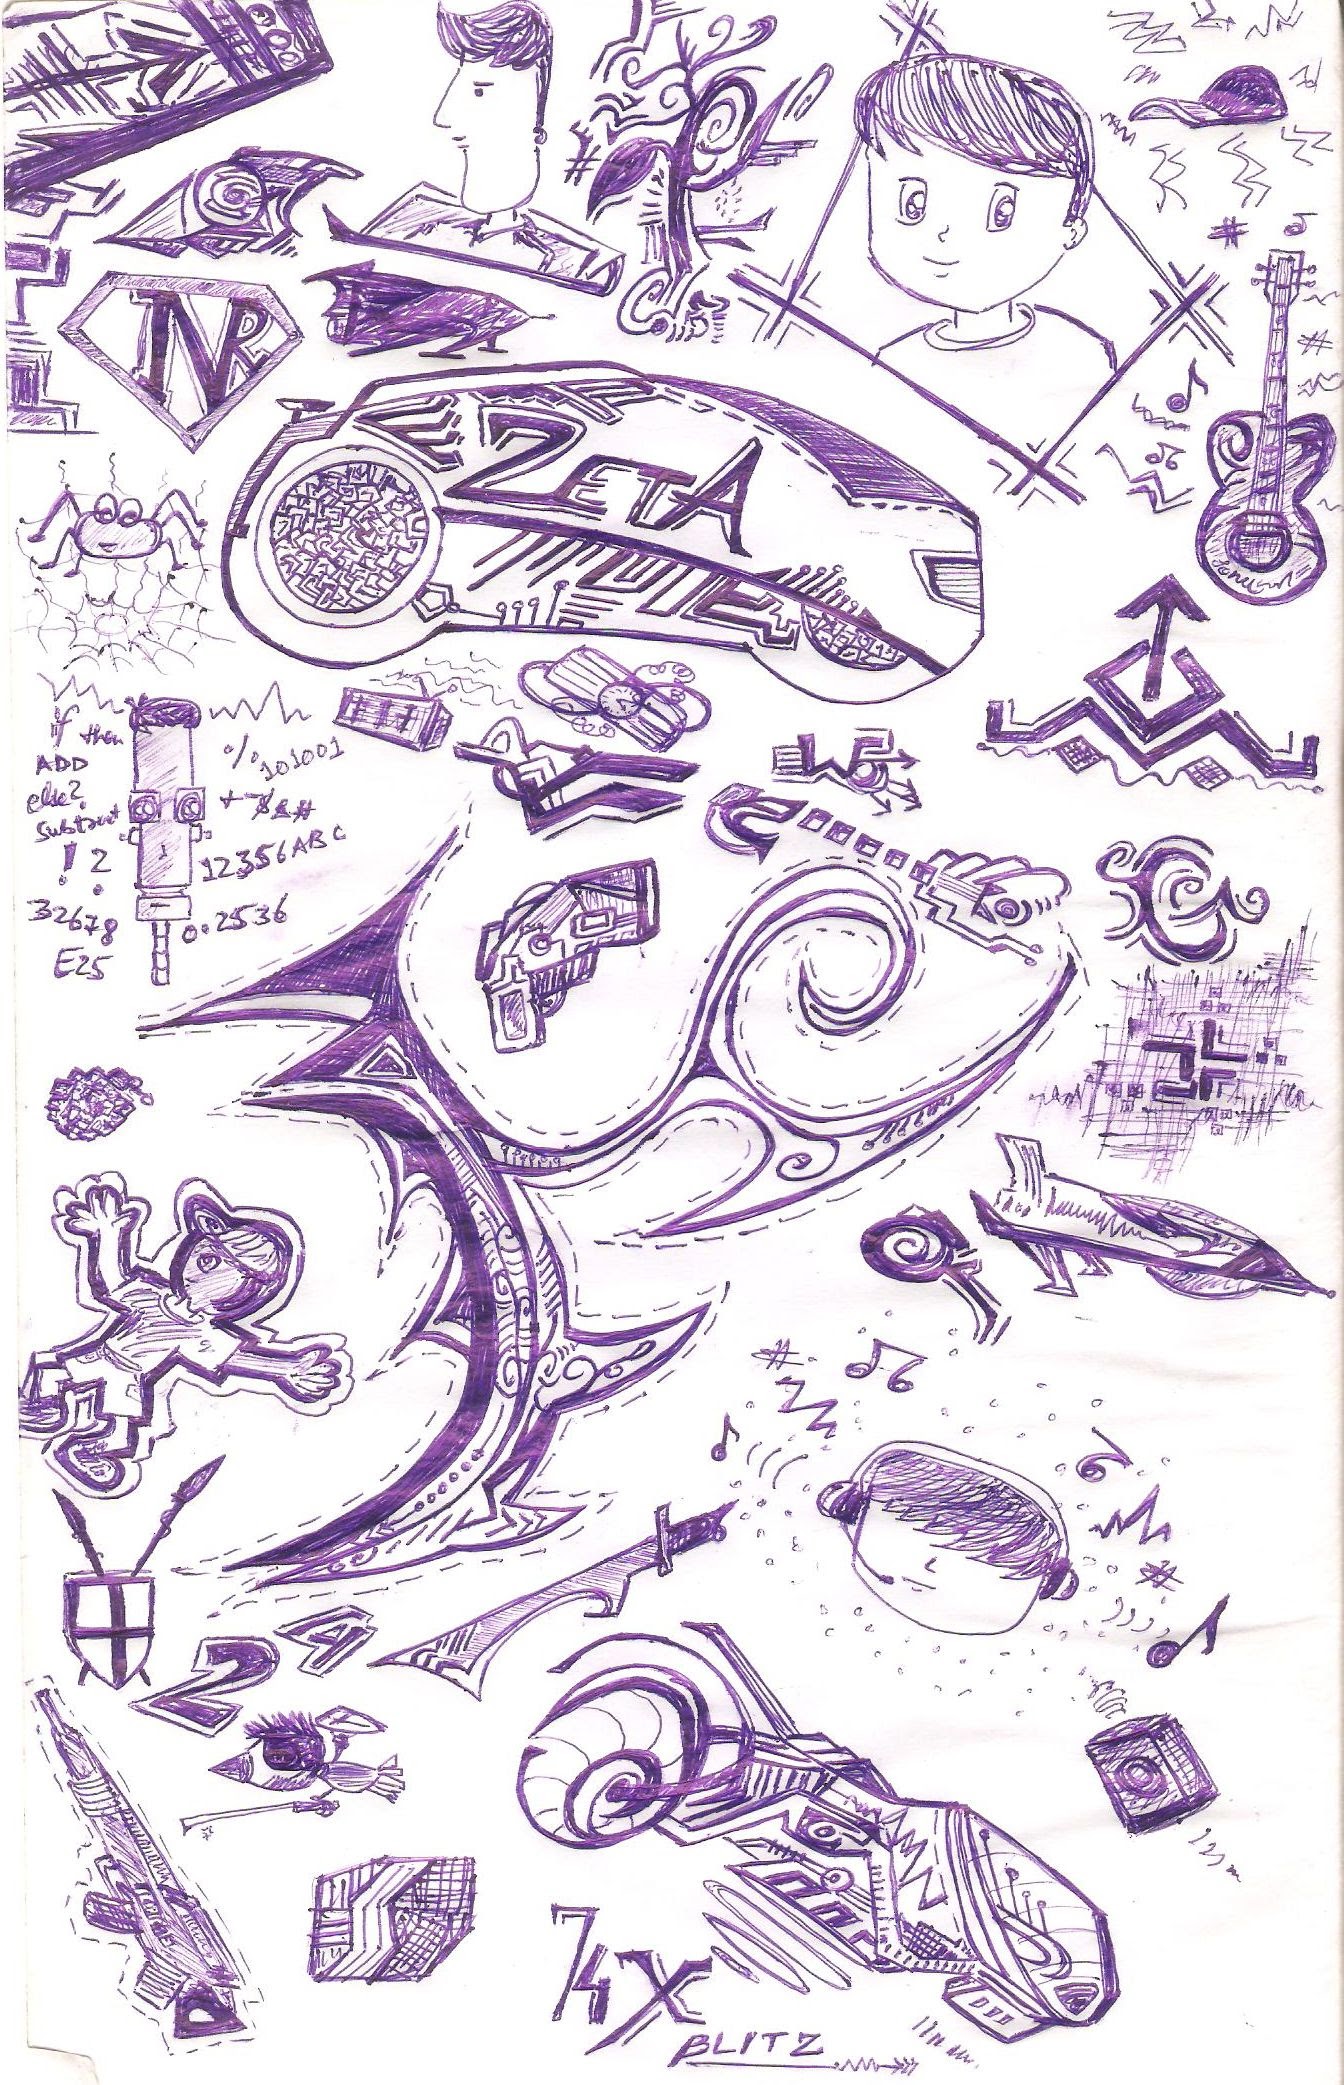 NR
ZETA
if then
ADD
else?
Subtract
! 2
32678
E25
% 101001
+-$&#
12356ABC
0.2536
24
74X
BLITZ